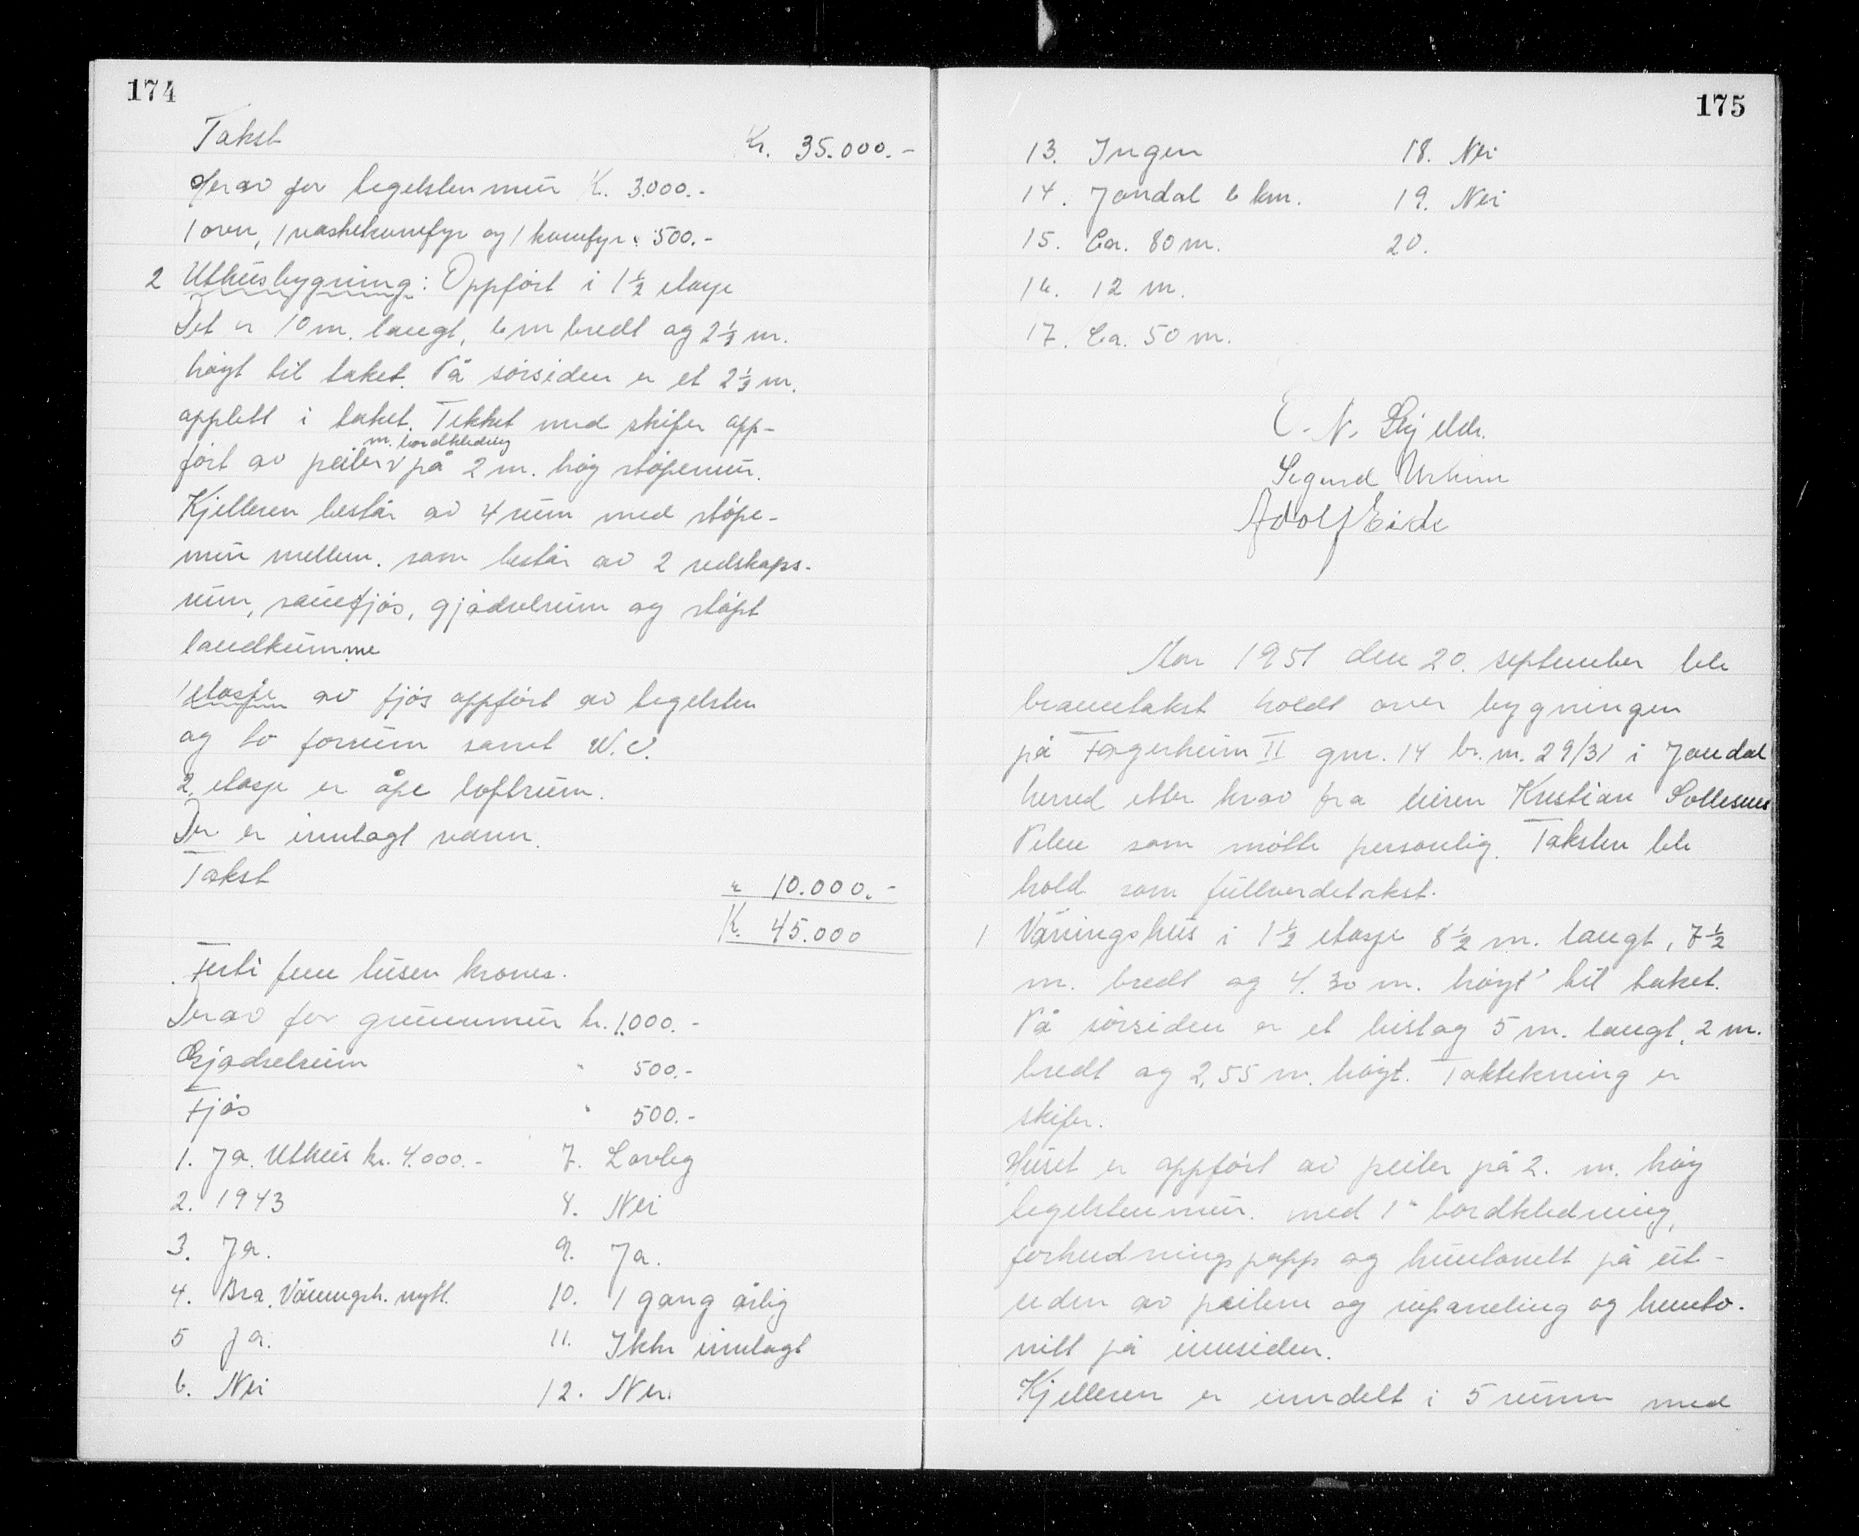 174
Takst Kr. 35.000.-
Herav for teglstenmur K. 3.000.-
1 ovn, 1 vaskekomfyr og 1 komfyr " 500.-
2 Uthusbygning: Oppfört i 1 1/2 etasje
Det er 10 m. langt, 6 m bredt og 2 1/2 m.
högt til taket. På sörsiden er et 2 1/2 m.
opplett i taket. Tekket med skifer opp-
fört av peiler m. bordkledning på 2 m. höy stöpemur.
Kjelleren består av 4 rum med stöpe-
mur mellem. som består av 2 redskaps-
rum, sauefjös, gjödselrum og stöpt
landkumme
1 etasje av fjös oppfört av teglsten
og to forrum samt W.C.
2. etasje er åpe loftrum.
Der er innlagt vann.
Takst " 10.000.-
K. 45.000
Førti fem tusen kroner.
Derav for grunnmur kr. 1.000.-
Gjødselrum " 500.-
Fjös " 500.-
1. Ja. Uthus kr. 4.000.- 7. Lovleg
2. 1943 8. Nei
3. Ja. 9. Ja.
4. Bra. Våningsh. nytt. 10. 1 gang årlig
5 Ja. 11. Ikke innlagt
6. Nei 12. Nei.
175
13. Ingen 18. Nei
14. Jondal 6 km. 19. Nei
15. Ca. 80 m. 20.
16. 12 m.
17. Ca. 50 m.
E. N. Skjelde.
Sigurd Urheim
Adolf Eide
Aar 1951 den 20. september ble
branntakst holdt over bygningen
på Fagerheim II gnr. 14 br. nr. 29/31 i Jondal
herred etter krav fra eieren Kristian Sollesnes
som mötte personlig. Taksten ble
hold som fullverdetakst.
1 Våningshus i 1 1/2 etasje 8 1/2 m. langt, 7 1/2
m. bredt og 4.30 m. høgt til taket.
På sörsiden er et bislag 5 m. langt, 2 m.
bredt og 2,55 m. høgt. Taktekning er
skifer.
Huset er oppfört av peiler på 2. m. höy
teglstenmur. med 1" bordkledning,
forhudningspapp og huntonitt på ut-
siden av peilene og inpaneling og hunto-
nitt på innsiden.
Kjelleren er inndelt i 5 rumm med